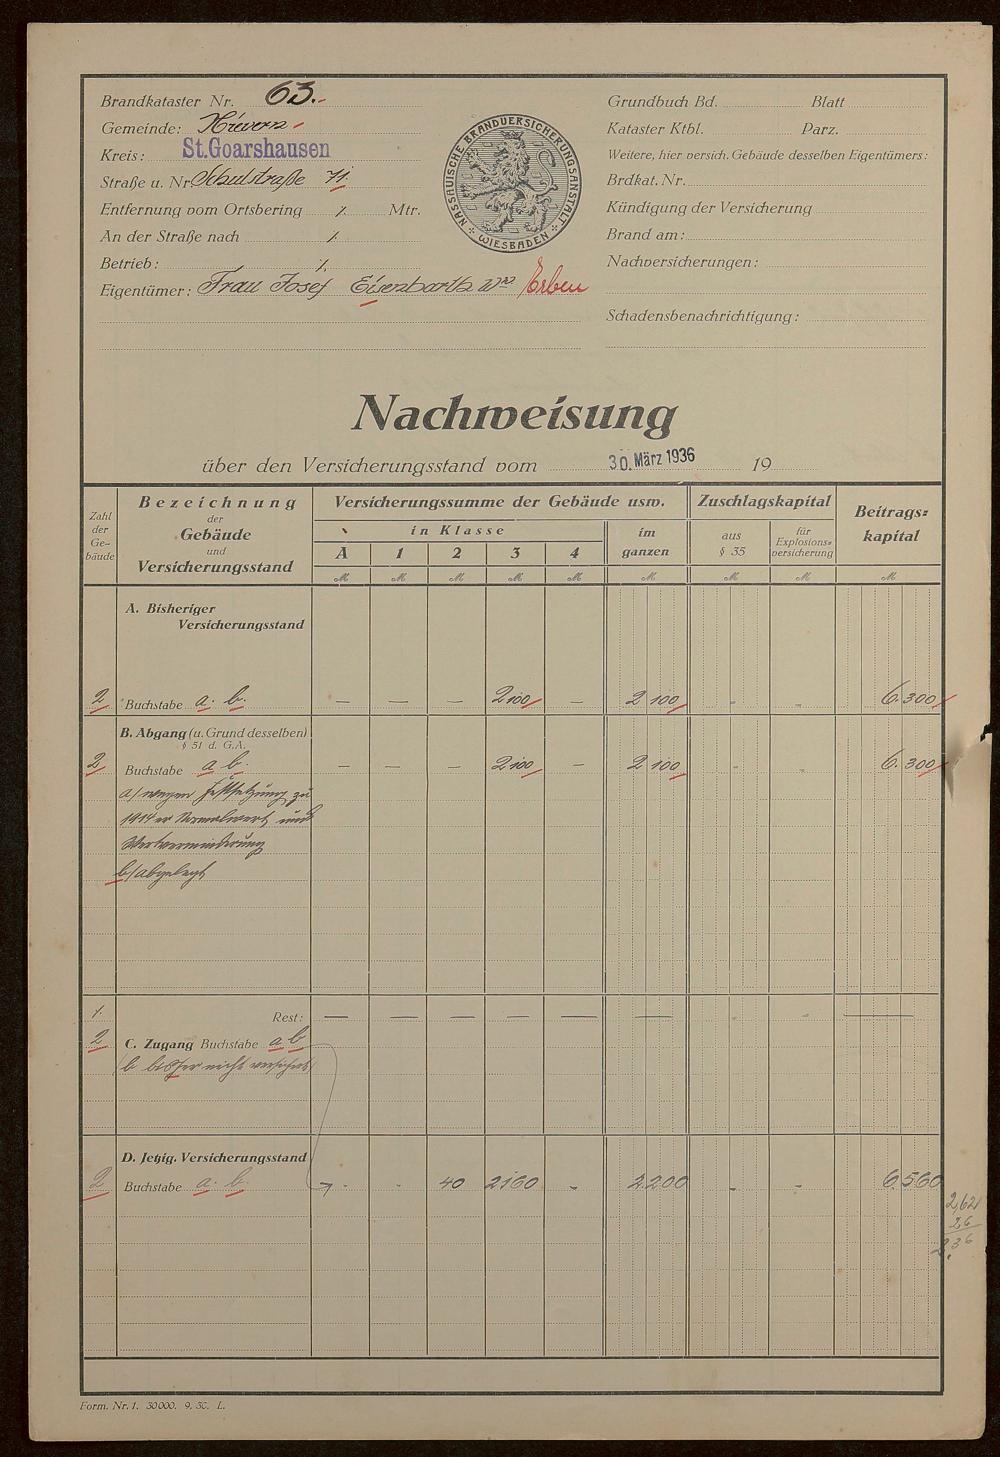 Brandkataster Nr. 63.
Gemeinde:
Kreis: St. Goarshausen
Straße u. Nr. Schulstraße 71.
Entfernung vom Ortsbering ./. Mtr.
An der Straße nach ./.
Betrieb: ./.
Eigentümer: Frau Josef Eisenbarth Wwe Erben
NASSAUISCHE BRANDVERSICHERUNGSANSTALT
WIESBADEN
Grundbuch Bd. Blatt
Kataster Ktbl. Parz.
Weitere, hier versich. Gebäude desselben Eigentümers:
Brdkat. Nr.
Kündigung der Versicherung
Brand am:
Nachversicherungen:
Schadensbenachrichtigung:
Nachweisung
über den Versicherungsstand vom 30. März 1936 19
Zahl der Ge-bäude
Bezeichnung
der
Gebäude
und
Versicherungsstand
Versicherungssumme der Gebäude usw.
in Klasse
A 1 2 3 4
im ganzen
Zuschlagskapital
aus § 35
für Explosions=versicherung
Beitrags=kapital
M M M M M M M M M
A. Bisheriger
Versicherungsstand
2 Buchstabe a. b. — — — 2100 — 2 100 - - 6.300
B. Abgang (u. Grund desselben)
§ 51 d. G.A.
2 Buchstabe a b. — — — 2100 — 2 100 - - 6.300
a/ wegen Festsetzung zu
1914er Normalwert und
Wertverminderung
b/ abgelegt
./. Rest: — — — — — — - - —
2 C. Zugang Buchstabe a b
b bisher nicht versichert
D. Jetzig. Versicherungsstand
2 Buchstabe a. b. - - 40 2160 - 2.200 - - 6.560
2,62
26
2,36
Form. Nr. 1. 30000. 9. 30. L.